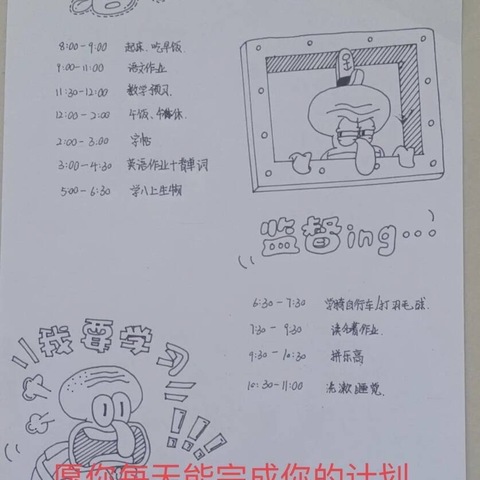 8:00-9:00 起床、吃早饭
9:00-11:00 语文作业
11:30-12:00 数学预习
12:00-2:00 午饭、午休
2:00-3:00 字帖
3:00-4:30 英语作业+背单词
5:00-6:30 学八上生物
监督ing...
6:30-7:30 学骑自行车/打羽毛球
7:30-9:30 作业
9:30-10:30 拼乐高
10:30-11:00 洗漱睡觉
我要学习!!!
愿你每天能完成你的计划